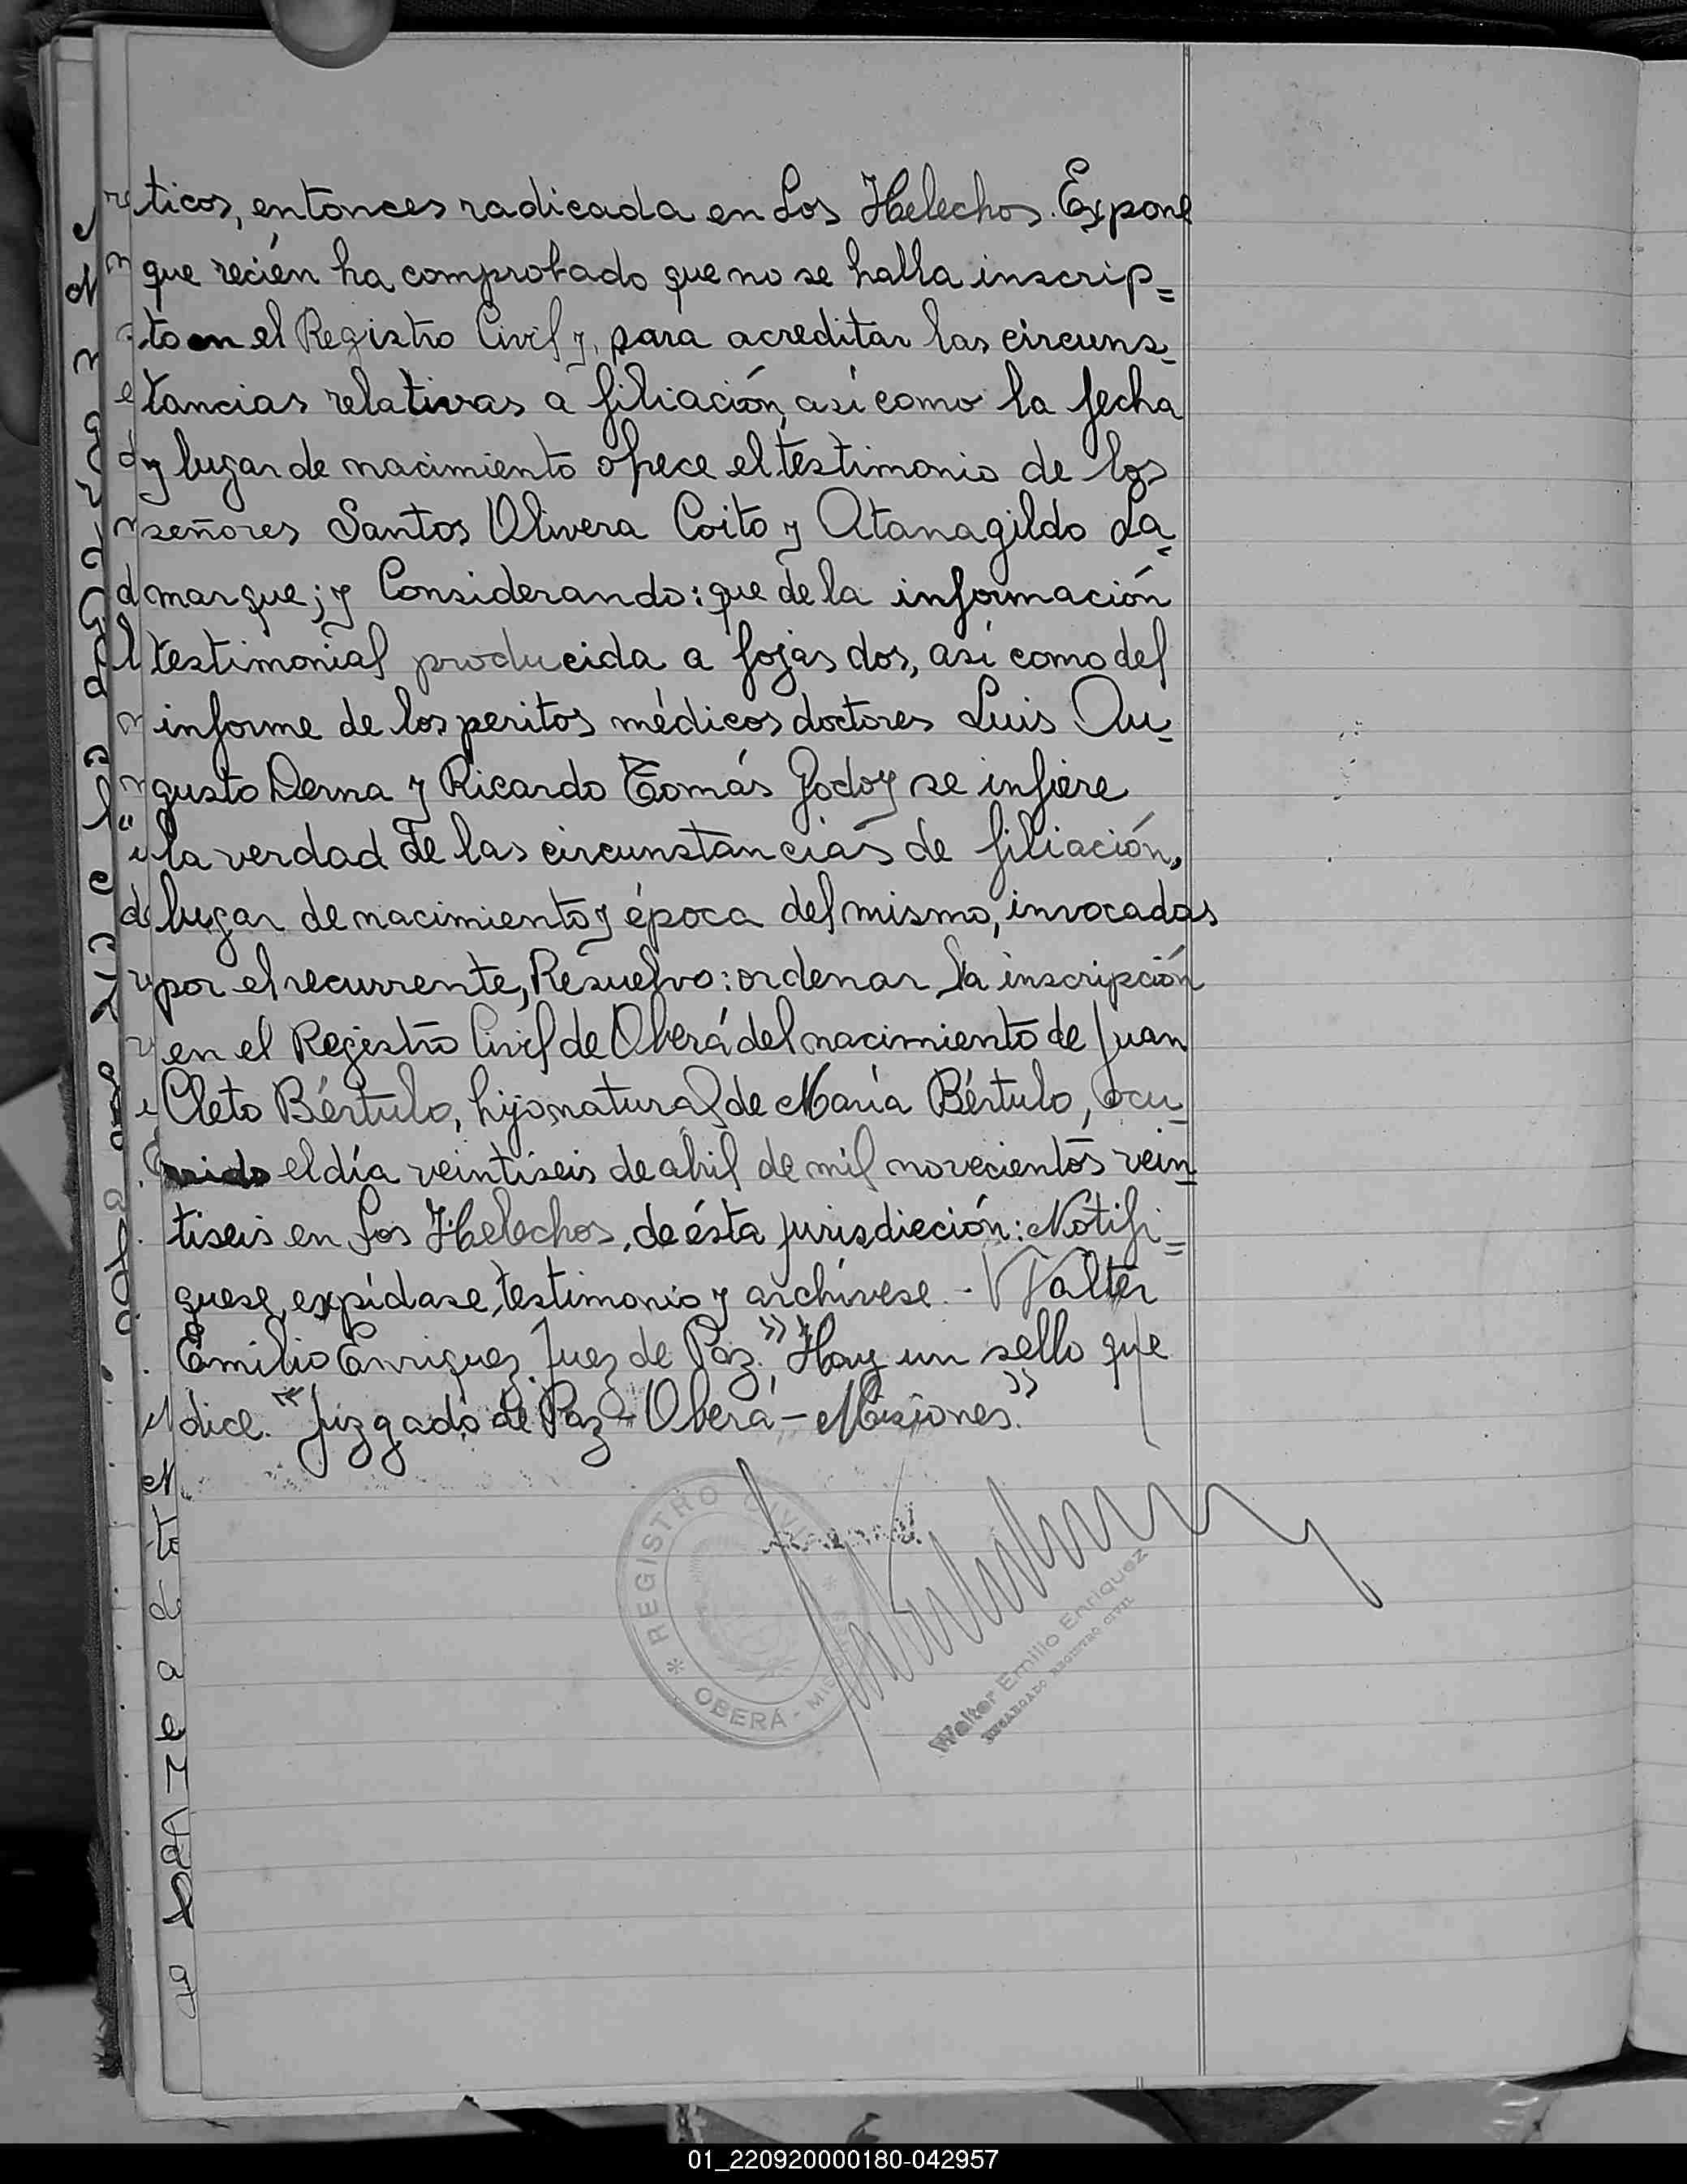 ticos, entonces radicada en Los Helechos. Expone
que recién ha comprobado que no se halla inscrip=
to en el Registro Civil y, para acreditar las circuns=
tancias relativas a filiación, así como la fecha
y lugar de nacimiento ofrece el testimonio de los
señores Santos Olivera Coito y Atanagildo La=
marque; y Considerando: que de la información
testimonial producida a fojas dos, así como del
informe de los peritos médicos doctores Luis Au=
gusto Derna y Ricardo Tomás Godoy se infiere
la verdad de las circunstancias de filiación,
lugar de nacimiento y época del mismo, invocadas
por el recurrente, Resuelvo: ordenar la inscripción
en el Registro Civil de Oberá del nacimiento de Juan
Cleto Bértulo, hijo natural de María Bértulo, ocu=
rrido el día veintiseis de abril de mil novecientos vein=
tiseis en Los Helechos, de ésta jurisdicción: Notifi=
quese, expídase, testimonio y archívese.- Walter
Emilio Enriquez. Juez de Paz." "Hay un sello que
dice. "Juzgado de Paz - Oberá - Misiones."
* REGISTRO CIVIL *
OBERÁ - MISIONES
Walter Emilio Enriquez
ENCARGADO REGISTRO CIVIL
01_220920000180-042957